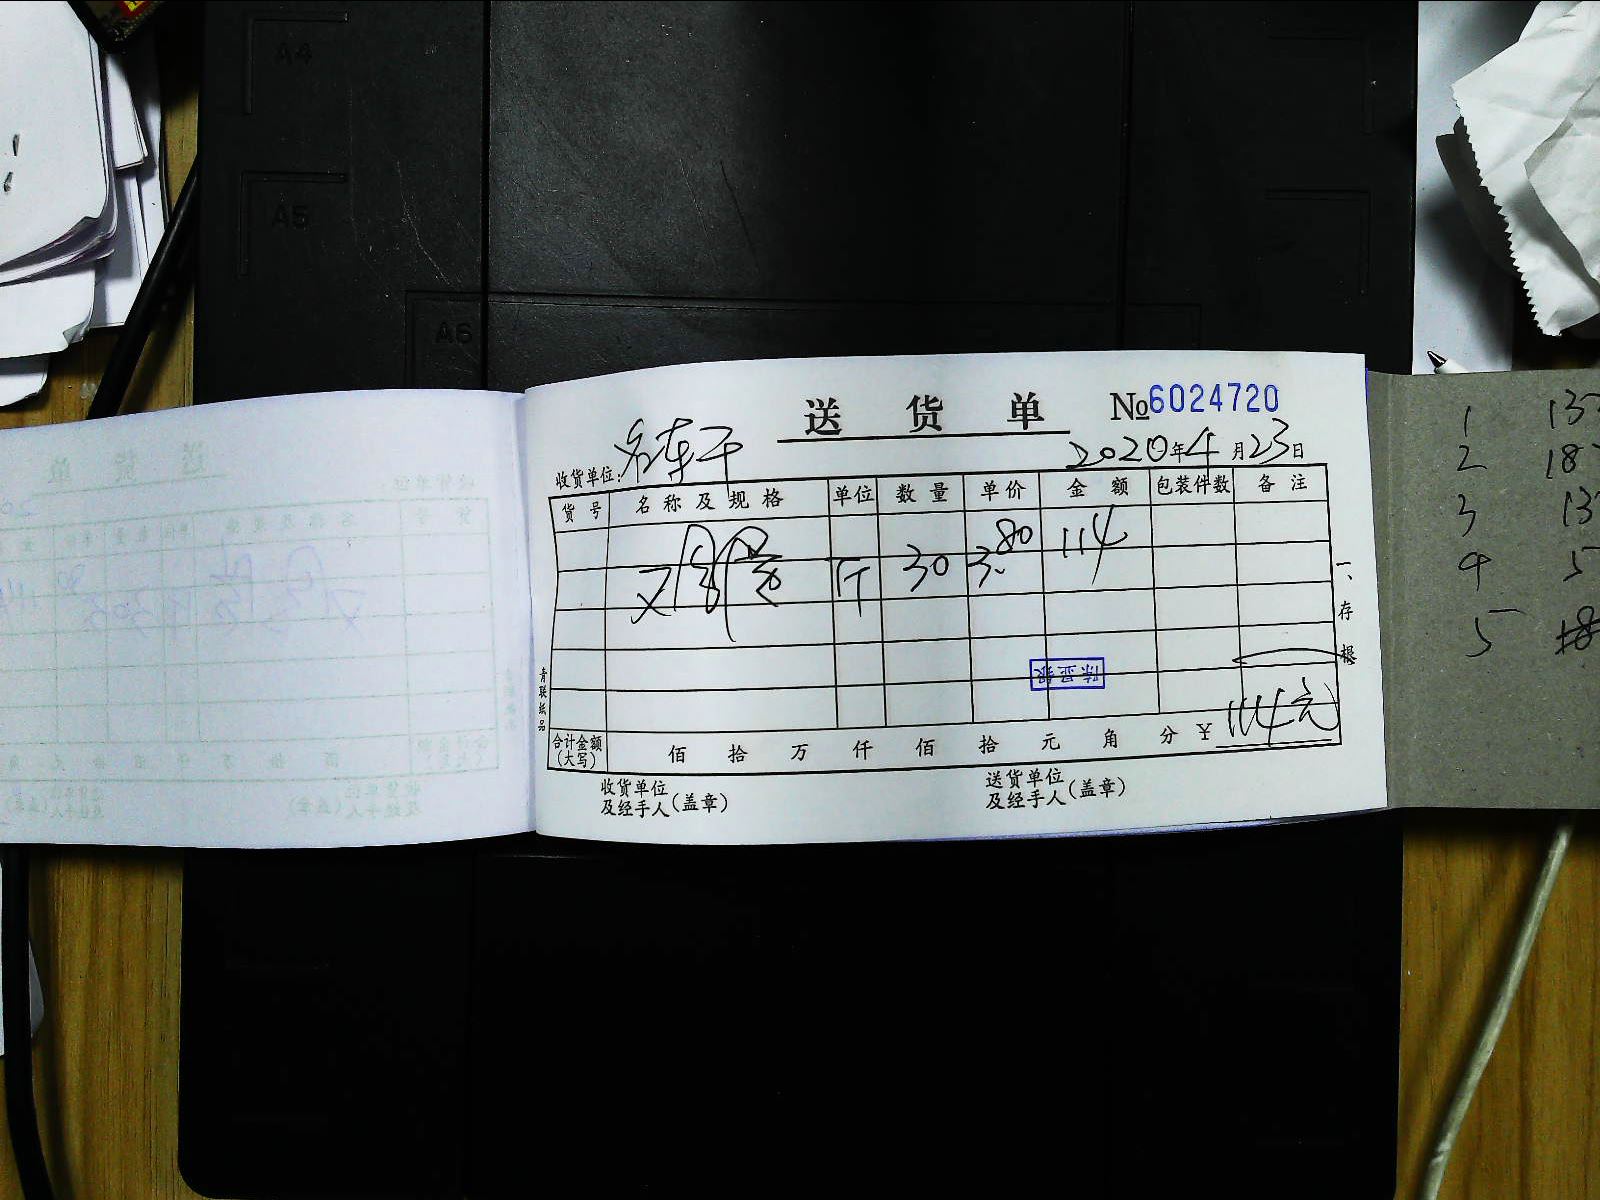 A4
A5
A6
送货单 №6024720
收货单位:
2020年4月23日
货号 名称及规格 单位 数量 单价 金额 包装件数 备注
斤 30 3.80 114
一、存根
青联纸品
合计金额(大写) 佰 拾 万 仟 佰 拾 元 角 分 ¥ 114元
收货单位及经手人(盖章)
送货单位及经手人(盖章)
1 13
2 18
3 13
4 5
5 18